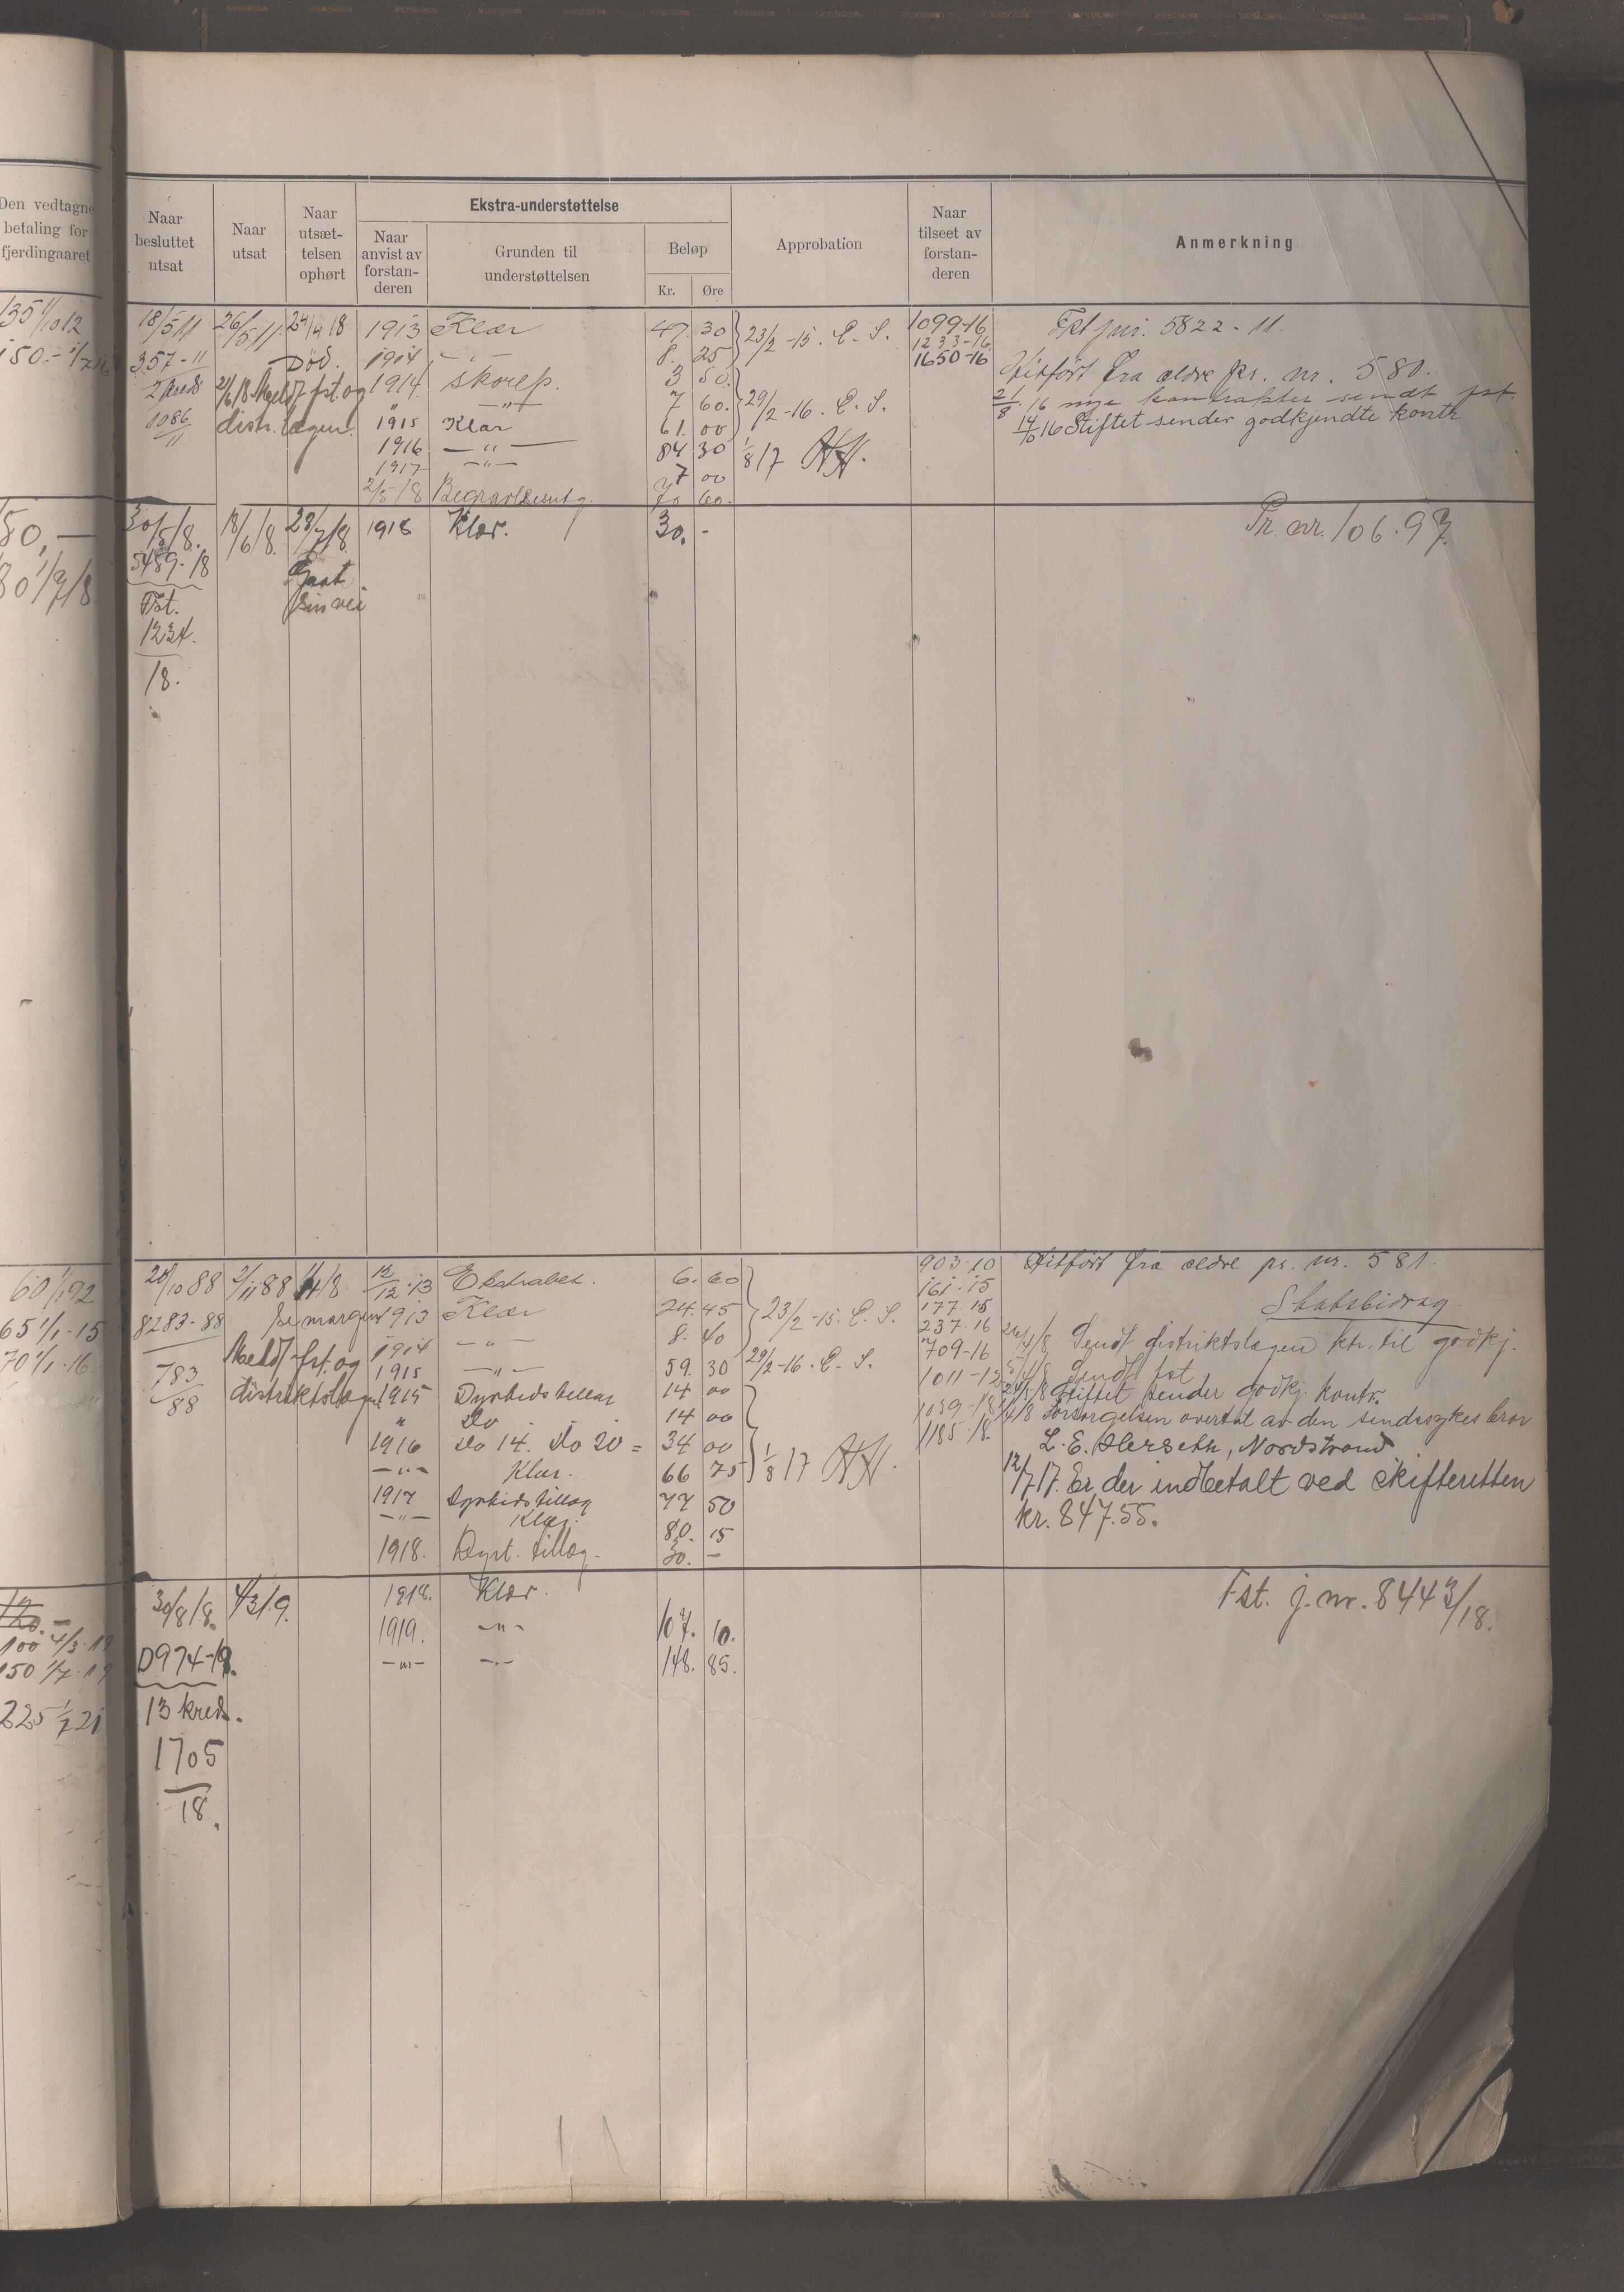 Den vedtagne
betaling for
fjerdingaaret
Naar
besluttet
utsat
Naar
utsat
Naar
utsæt-
telsen
ophørt
Ekstra-understøttelse
Naar
anvist av
forstan-
deren
Grunden til
understøttelsen
Beløp
Kr. Øre
Approbation
Naar
tilseet av
forstan-
deren
Anmerkning
135 1/10 12
150.-
18/5 11 26/5 11 24/4 18 1913 Klær 47. 30 23/2-15. E. S. 1099-16 Fst jnr. 5822-11.
1233-16
357-11 Død. 1914 -"- 8. 25 1650-16
Hitført fra ældre pr. nr. 580.
2 kreds 21/6 18 Meldt fst. og 1914 Skorep. 3 50.
2/8 16 nye kontrakter sendt fst.
" -"- 7 60. 29/2-16. E. S.
1086/11 distr. lægen. 1915 Klær 61. 00
14/10 16 Stiftet sender godkjendte kontr.
1916 -"- 84 30 1/8 17
1917 -"- 00
2/5 18 Begravelsesutg. 70 60.
80,-
80 1/7 18
30/5 18. 18/6 18. 28/7 18 1918 Klær. 30. - Pr. nr. 106.97.
5489-18 Gaat
Fst. sin vei
1234.
18.
60 1/1 92
65 1/1-15
70 1/1-16
20/10 88 2/11 88 12/12-13 Ekstrabet. 6. 60 903-10 Hitført fra ældre pr. nr. 581.
161-15
8283-88 Se margen 1913 Klær 24. 45 23/2-15. E. S. 177-15 Statsbidrag
237-16
Meldt fst. og 1914 -"- 8. 40 709-16 Sendt distriktslægen ktr. til godkj.
783/88 1915 -"- 59. 30 29/2-16. E. S. 1011-17 Sendt fst
distriktslægen 1915 Dyrtidstillæg 14 00 Stiftet sender godkj. kontr.
" Do 14 00 1039-18 Forsorgelsen overtat av den sindssykes bror
1916 Do 14. Do 20 = 34 00 1185-18. L. E. Herseth, Nordstrand
-"- Klær. 66 75 1/8 17
12/7 17. Er der indbetalt ved skifteretten
1917 Dyrtidstillæg 77 50 kr. 847.55.
-"- Klær. 80. 15
1918. Dyrt. tillæg. 30. -
120.-
100 4/3-19
150 1/7-19
225 1/7 21
30/8 18. 4/3 19. 1918. Klær. Fst. j. nr. 8443/18.
1919. -"- 107. 10.
D974-19. -"- -"- 148. 85.
13 kreds.
1705
18.